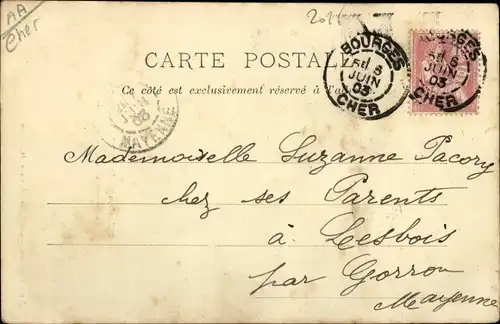 AA
Cher
CARTE POSTALE
Ce côté est exclusivement réservé à l'a
BOURGES
5
JUIN
03
CHER
BOURGES
5
JUIN
03
CHER
JUIN
03
MAYENNE
Mademoiselle Suzanne Pacory
chez ses Parents
à Lesbois
par Gorron
Mayenne